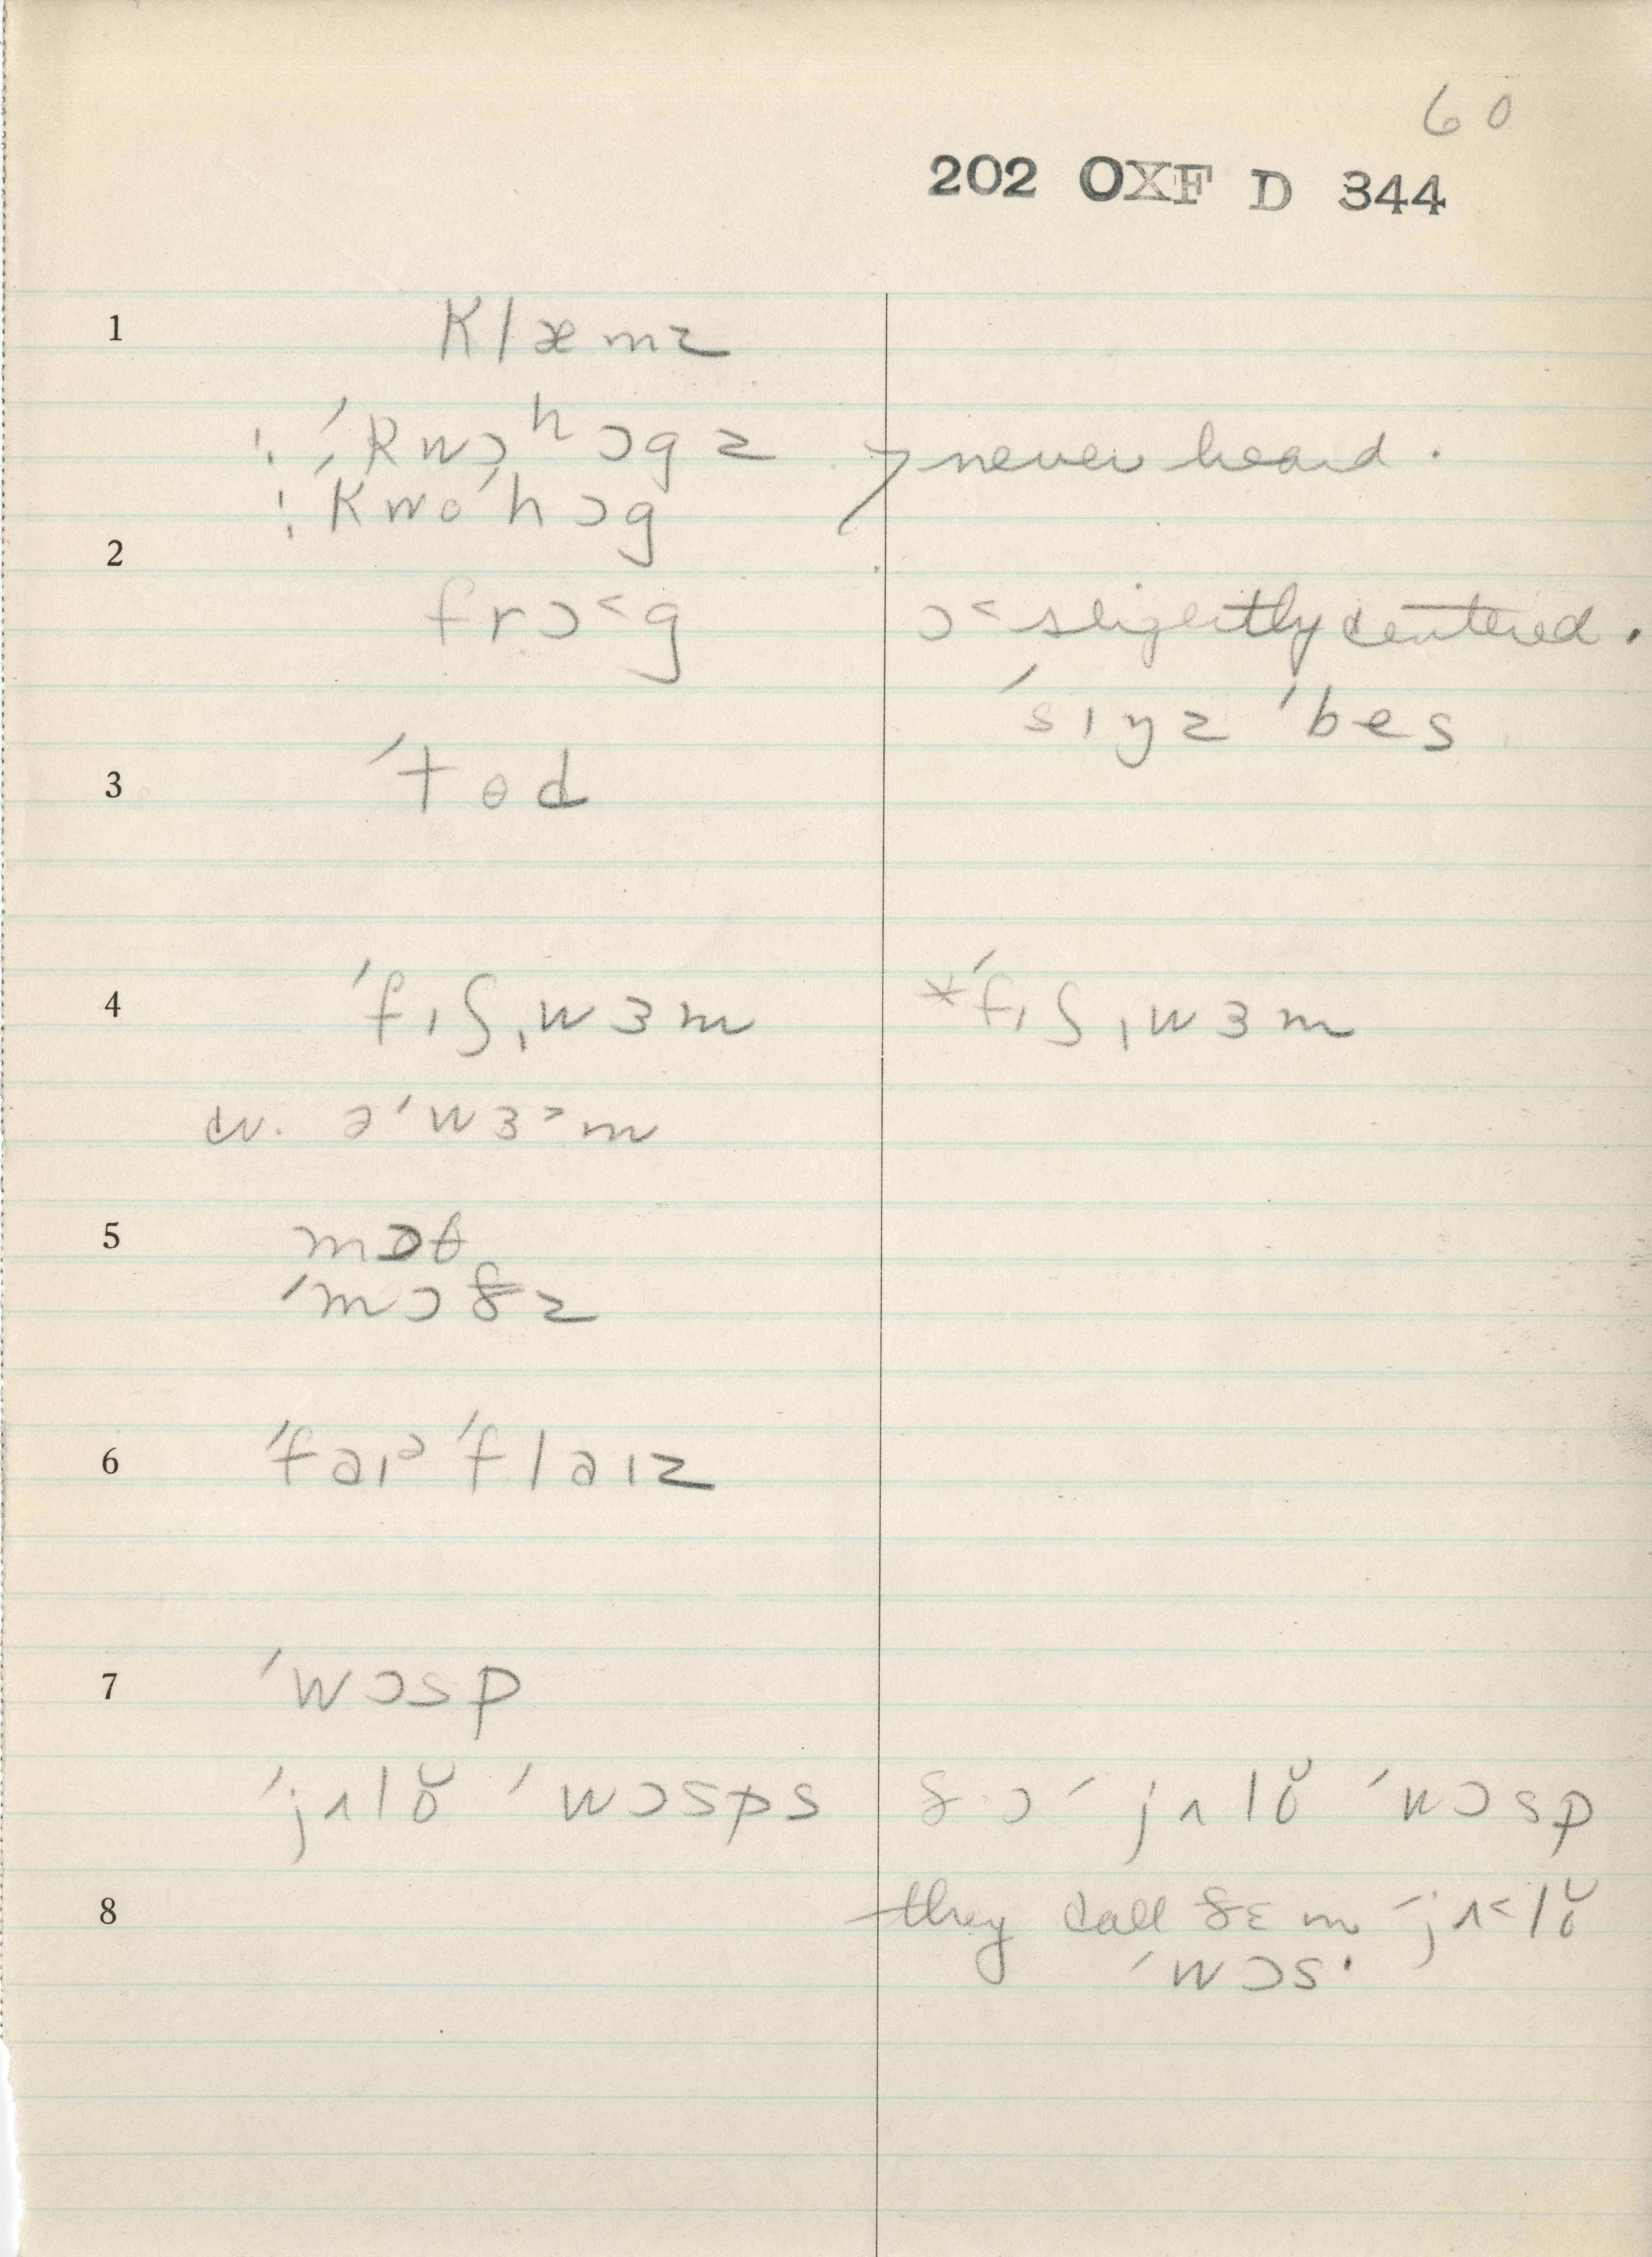 60
202 OXF D 344
1 klæmz
¦ ˈkwɔʰɔgz never heard.
¦ ˈkwoˈhɔg
2
frɔ˂g ɔ˂ slightly centered.
ˈsɪŋz ˈbes
3 ˈtɵd
4 ˈfɪʃˌwɜm *ˈfɪʃˌwɜm
cv. əˈwɜ˃m
5 mɒθ
ˈmɔðz
6 ˈfaɪᵊ ˈflaɪz
7 ˈwɔsp
ˈjʌlŏ ˈwɔsps ðɔ ˈjʌlŏ ˈwɔsp
8 they call ðɛm ˈjʌ˂lŏ
ˈwɔs·